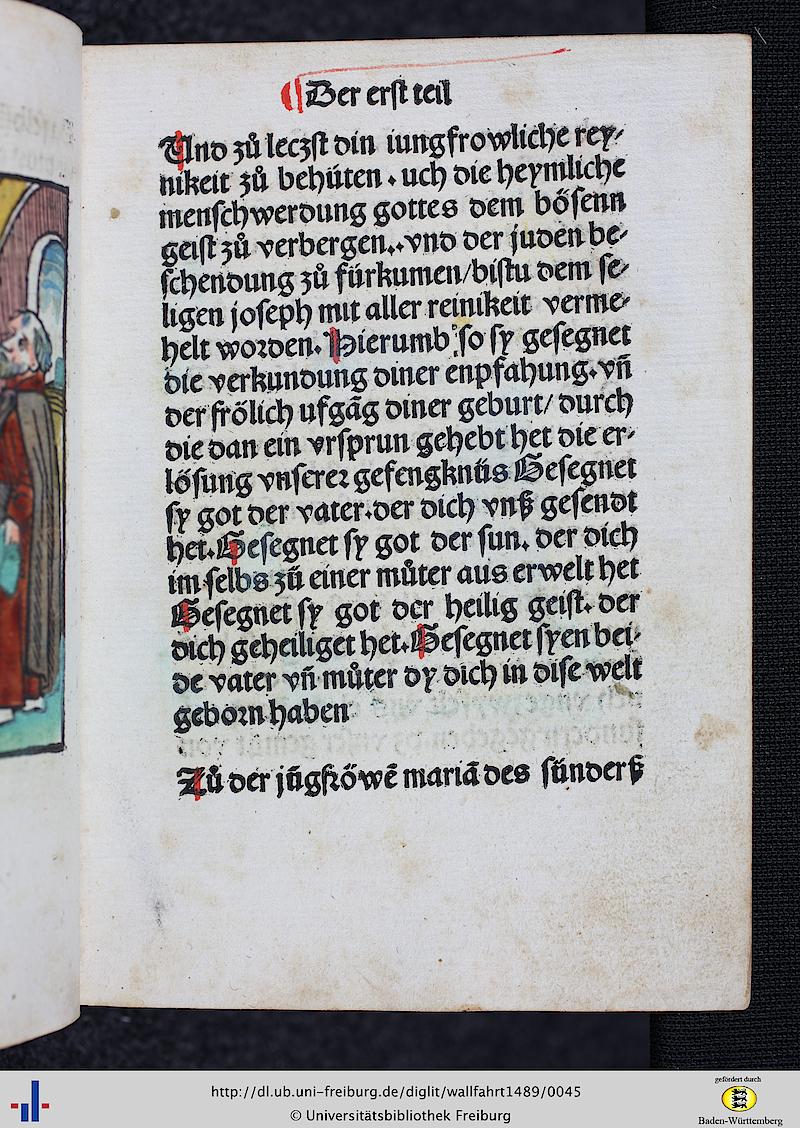 Der erst teil
Und zů leczst din iungfrowliche rey⸗
nikeit zů behüten . uch die heymliche
menschwerdung gottes dem bösenn
geist zů verbergen..vnd der juden be⸗
schendung zů fürkumen/bistu dem se⸗
ligen joseph mit aller reinikeit verme⸗
helt worden. Hierumb so sy gesegnet
die verkundung diner enpfahung.vn̄
der frölich ufgāg diner geburt/ durch
die dan ein vrsprun gehebt het die er⸗
lösung vnserer gefengknüs Gesegnet
sy got der vater.der dich vnß gesendt
het.Gesegnet sy got der sun. der dich
im selbs zů einer můter aus erwelt het
Gesegnet sy got der heilig geist. der
dich geheiliget het.Gesegnet syen bei⸗
de vater vn̄ můter dy dich in dise welt
geborn haben
Zů der jūgfröwē mariā des sünderß
http://dl.ub.uni-freiburg.de/diglit/wallfahrt1489/0045
© Universitätsbibliothek Freiburg
gefördert durch
Baden-Württemberg